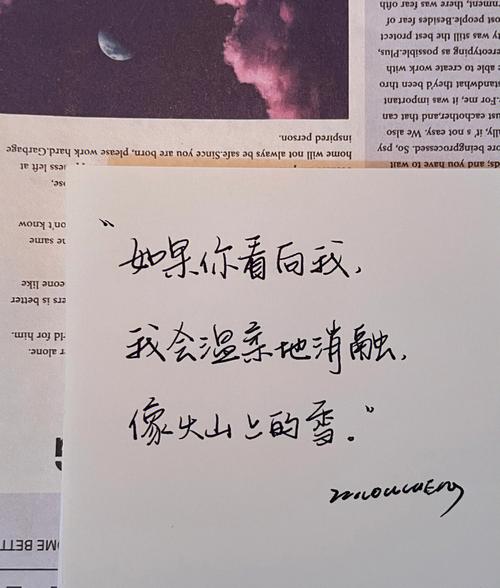 “如果你看向我,
我会温柔地消融,
像火山上的雪.”
er alone.
rld for him.
ers is better
eone like
he same
on't know
ess left at
home will not always be safe.Since you are born, please work hard.Garbage
inspired person.
ds; and you have to wait
ore beingprocessed. So, psy
lly, it's not easy. We also
ust eachother,and that can
.For me, it was important
standwhat they'd been thr
able to create work with
ereotyping as possible.Plus,
ty was still the best protect
ost people.Besides fear of
nment, there was fear ofth
OME BETT